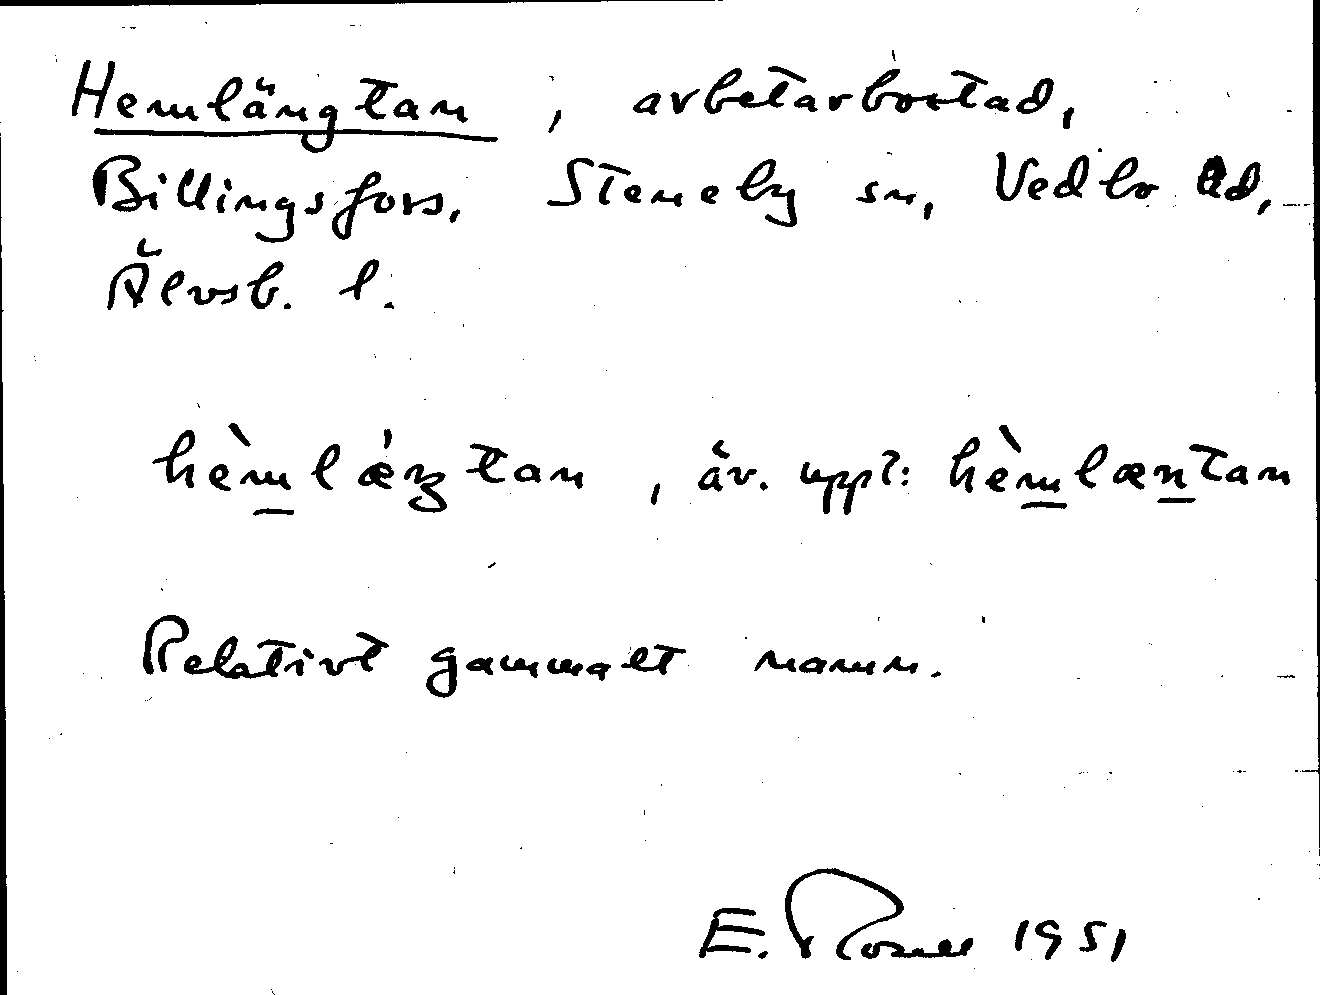 Hemlängtan, arbetarbostad,
Billingsfors, Steneby sn, Vedbo hd,
Älvsb. l.
hèmlæŋtan, äv. uppt: hèmlæntan
Relativt gammalt namn.
E. 1951